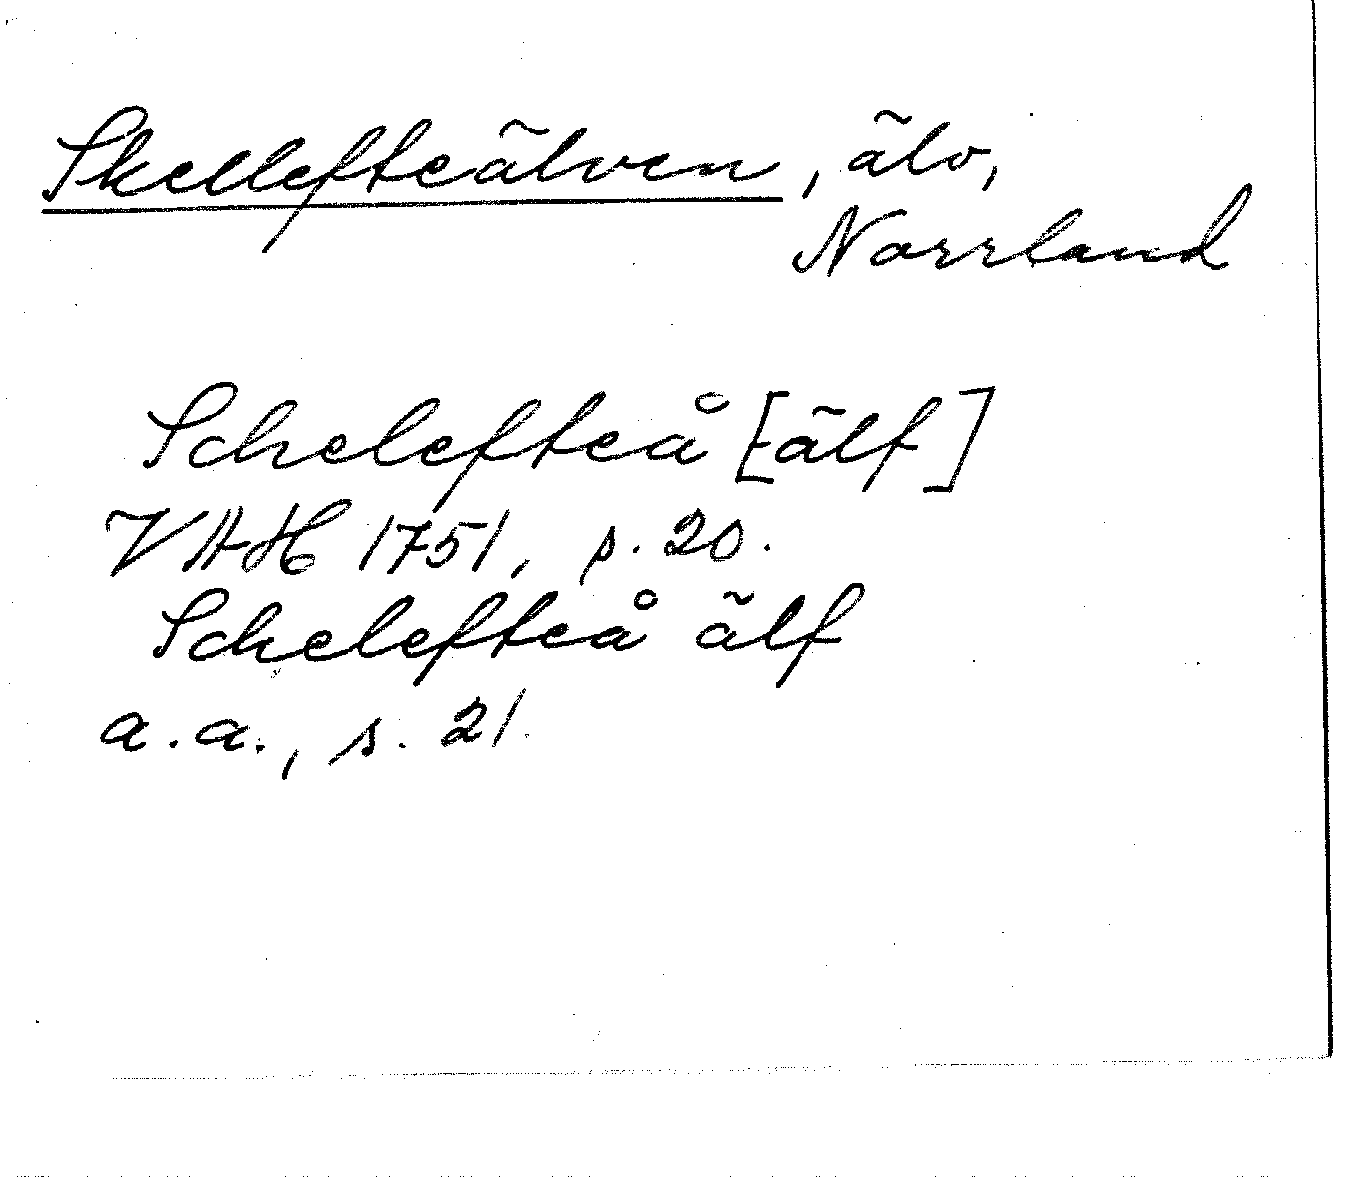 Skellefteälven, älv,
Norrland
Schelefteå [älf]
VAH 1751, s. 20.
Schelefteå älf
a.a., s. 21.